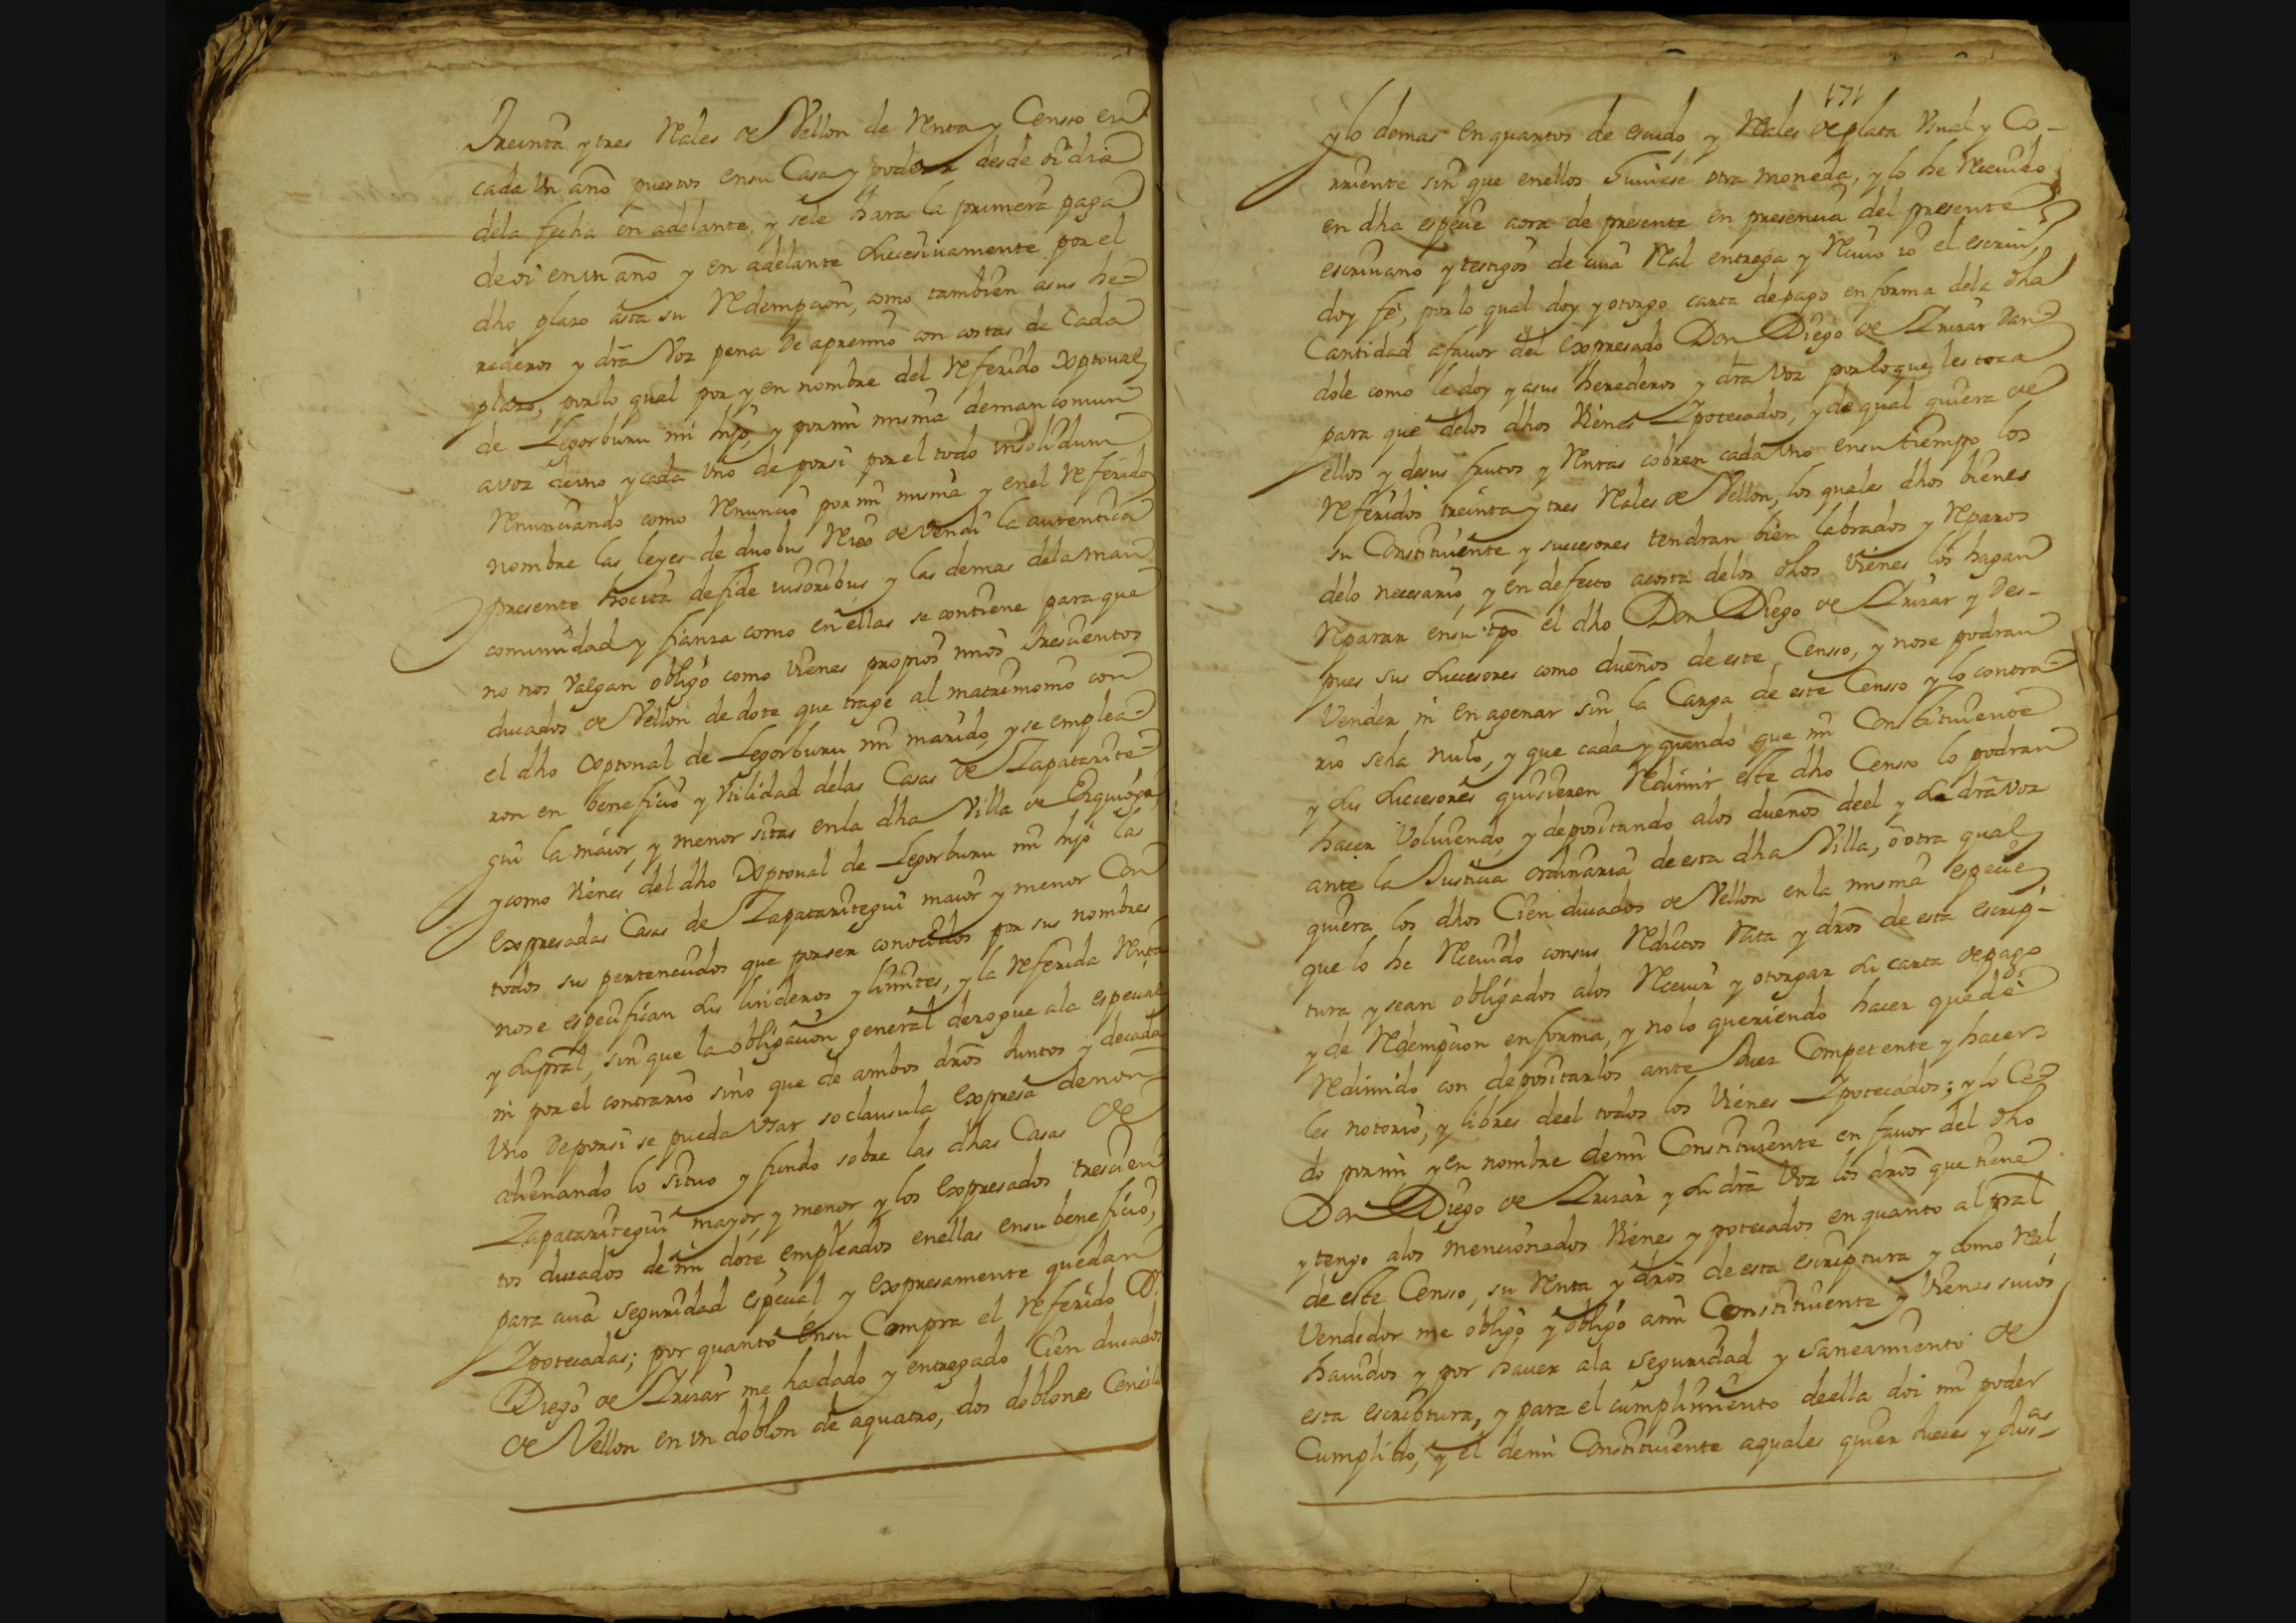 Treinta y tres Reales de Vellon de Renta y Censso en
cada Un año puestos en su Casa y poder desde oi dia
dela fecha en adelante, y sele hara la primera paga
de oi en un año y en adelante subcesivamente por el
dho plazo asta su Redempcion, como tambien a sus he-
rederos y dra Voz pena De apremio con costas de Cada
plazo, por lo qual por y en nombre del referido Xptoual
de Legorburu mi hijo, y por mi misma de man comun
a voz de uno y cada Uno de por si por el todo insolidum
Renunciando como Renuncio por mi misma y en el Referido
nombre las leyes de duobus Reis de vendi la autentica
presente hocita de fide iusoribus y las demas dela man
comunidad y fianza como en ellas se contiene para que
no nos valgan obligo como Vienes propios mios trescientos
ducados de Vellon de dote que trage al matrimonio con
el dho Xptoual de Legorburu mi marido, y se emplea-
ron en beneficio y Utilidad delas Casas de Zapatarite-
gui la maior, y menor sitas en la dha Villa de Ezquioga,
y como Vienes del dho Xptoual de Legorburu mi hijo las
Expresadas Casas de Zapataritegui maior y menor Con
todos sus pertenecidos que por ser conocidos por sus nombres
no se especifican sus linderos y limites, y la referida Renta
y su pral, sin que la obligacion general derogue a la especial
ni por el contrario sino que de ambos dros Juntos y de cada
Uno De por si se pueda Usar so clausula Expresa de non
alienando lo situo y fundo sobre las dhas Casas de
Zapataritegui mayor, y menor y los Expresados trescien
tos ducados de mi dote empleados en ellas en su beneficio,
para cuia seguridad especial y Expresamente quedan
Ipotecadas; por quanto en su Compra el referido Dn
Diego de Lizar me ha dado y entregado Cien ducados
de Vellon en un doblon de a quatro, dos doblones Cencill
171
y lo demas en quartos de escudo, y Reales de plata Usual y Co-
rriente sin que en ellos Tuuiese otra moneda, y lo he Receuido
en dha especie aora de presente en presencia del presente
escriuano y testigos de cuia Real entrega y Reciuo io el escriuo
doy fe, por lo qual doy y otorgo carta de pago en forma dela dha
Cantidad a fauor del Expresado Don Diego de Lizar Dan-
dole como le doy y a sus herederos y dra Voz por lo que les toca
para que delos dhos Vienes Ipotecados, y de qual quiera de
ellos y de sus frutos y Rentas cobren cada Uno en su tiempo los
Referidos treinta y tres Reales de Vellon, los quales dhos bienes
su Constituiente y succesores tendran bien labrados y Reparos
delo necesario, y en defecto a costa delos dhos Vienes los hagan
Reparar en su tpo el dho Don Diego de Lizar y Des-
pues sus subcesores como dueños de este Censso, y no se podran
Vender ni en agenar sin la Carga de este Censso y lo contra-
rio sea nulo, y que cada y quando que mi Constituiente
y sus subcesores quisieren Redimir este dho Censo lo podran
hacer Voluiendo, y depositando a los dueños deel y su dra voz
ante la Justicia ordinaria de esta dha Villa, o otra qual
quiera los dhos Cien ducados de Vellon en la misma especie
que lo he Receuido con sus Reditos Rata y dros de esta escrip-
tura y sean obligados a los Receuir y otorgar su carta de pago
y de Redempcion en forma, y no lo queriendo hacer quede
Redimido con depositarlos ante Juez Competente y hacer
les notorio, y libres deel todos los Vienes Ipotecados; y lo Ce-
do por mi y en nombre de mi Constituiente en fauor del dho
Don Diego de Lizar y su dra Voz los dros que tiene
y tengo a los mencionados Vienes ypotecados en quanto al pral
de este Censso, su Renta y dros de esta escriptura y como Real
Vendedor me obligo y obligo a mi Constituiente y Vienes suios
hauidos y por hauer a la seguridad y saneamiento de
esta escriptura, y para el cumplimiento de ella doi mi poder
Cumplido, y el de mi Constituiente a quales quier Jueces y Jusas